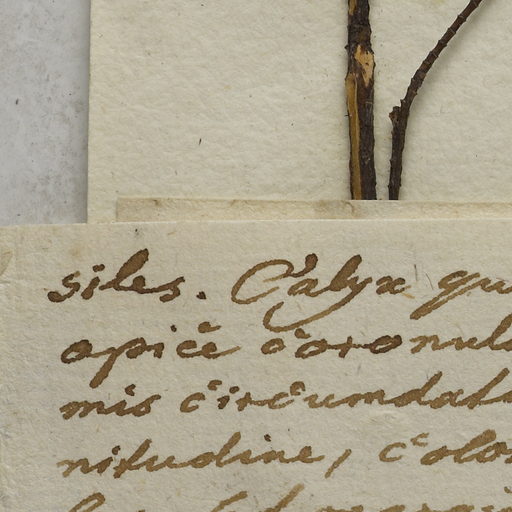 siles. Calyx qu
apice coronula
mis circumdat
nitudine, color